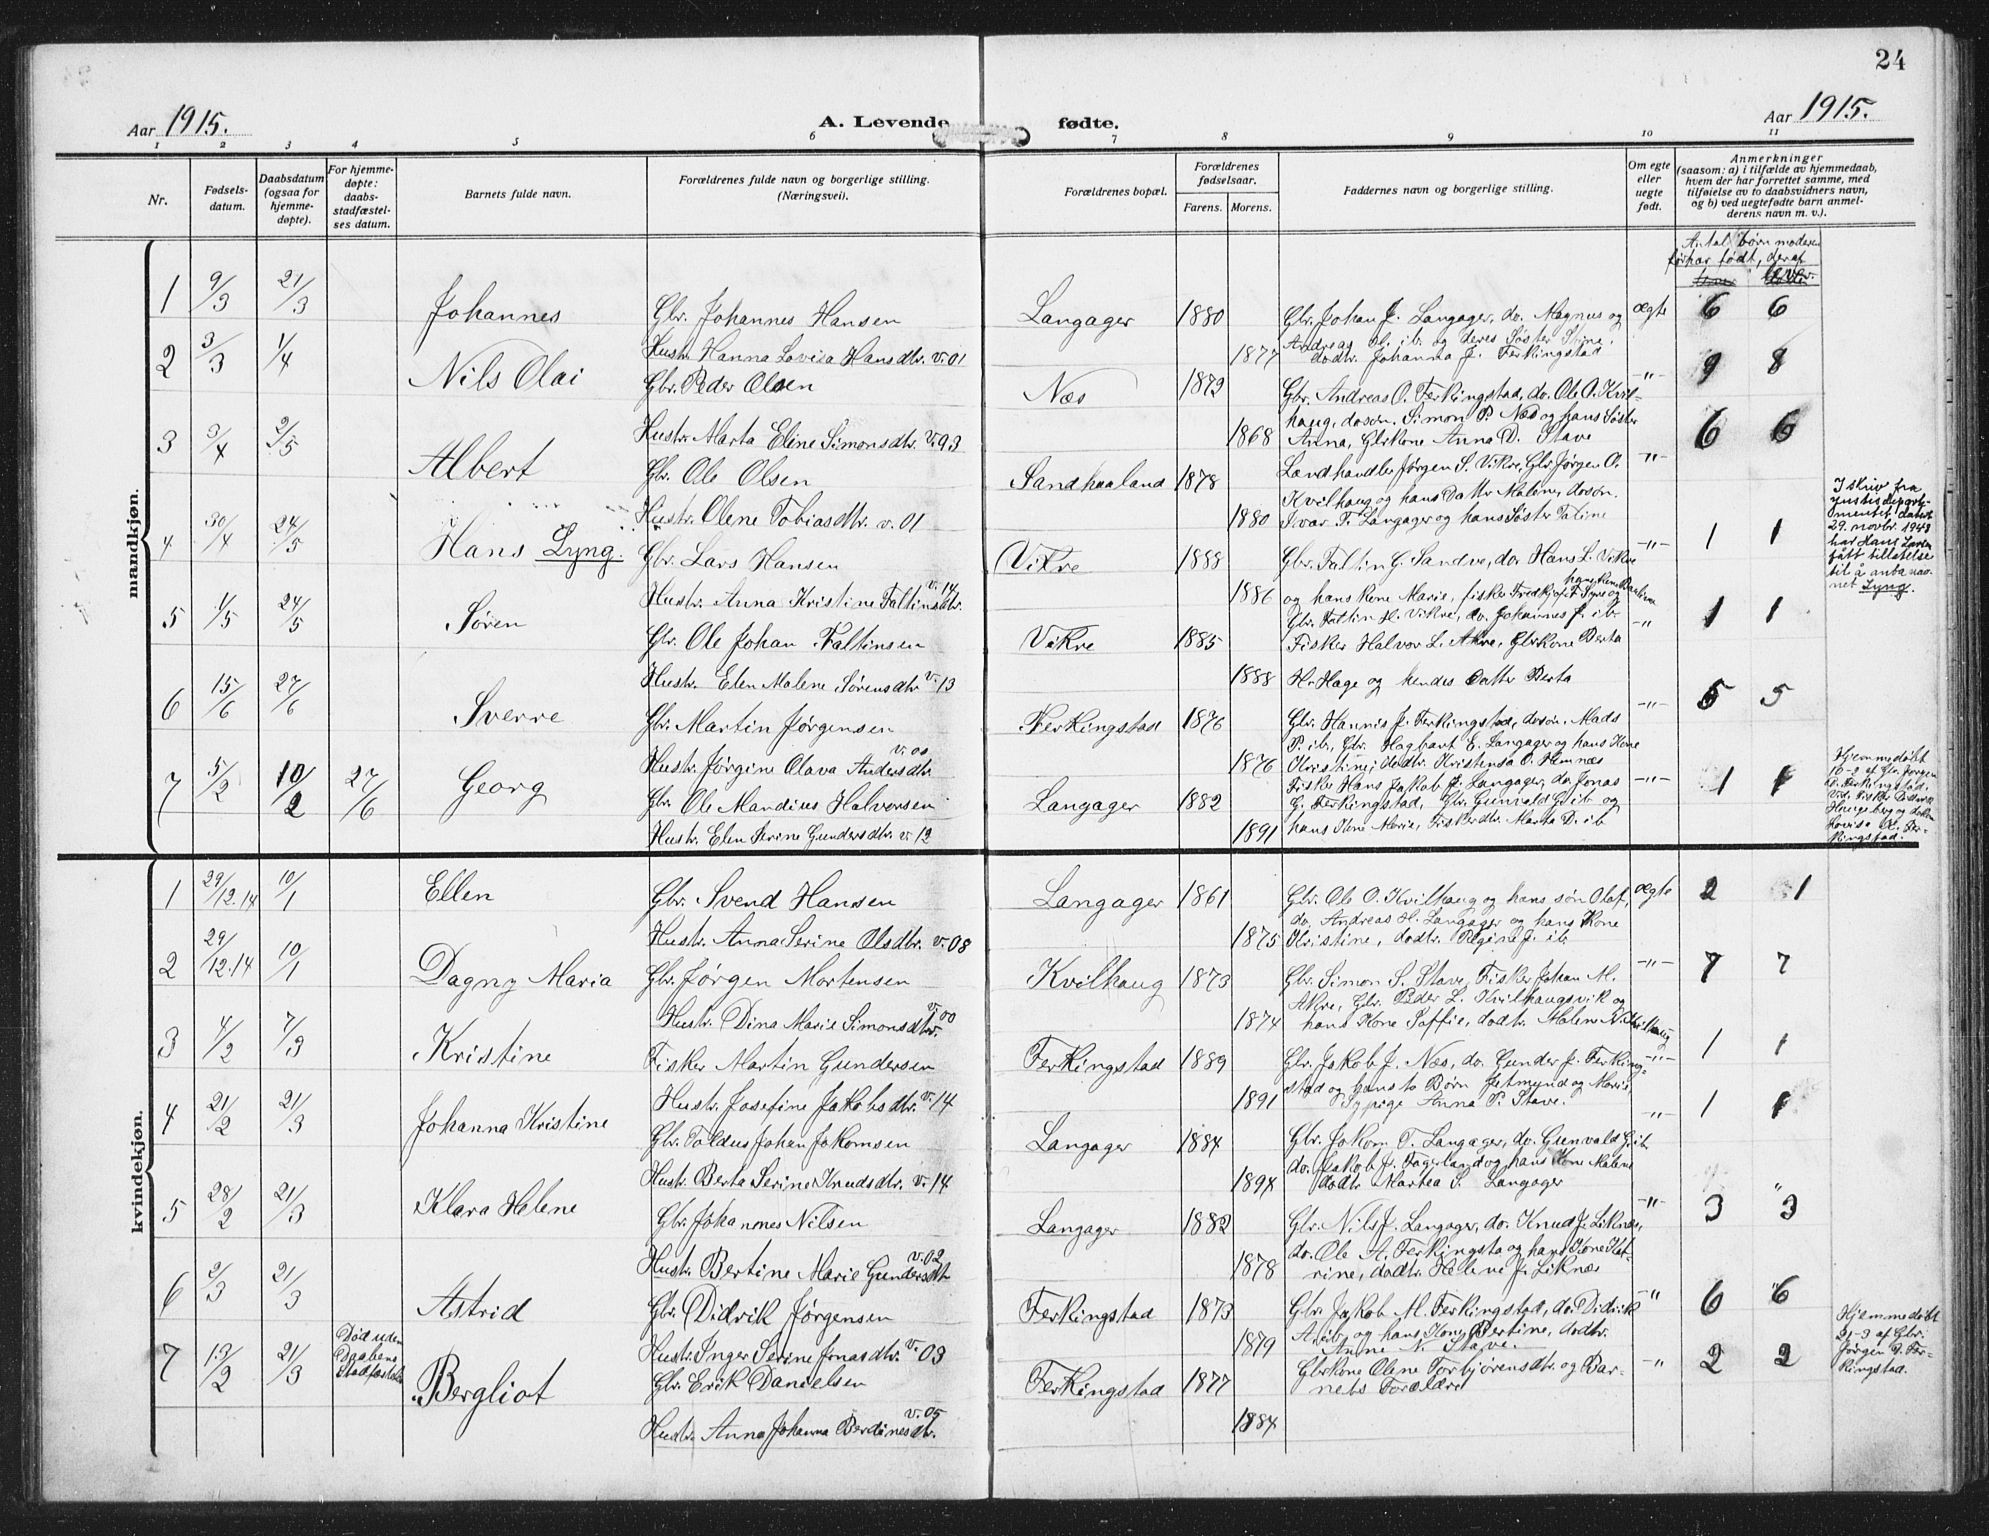 24
Aar 1915.
A. Levende fødte.
Aar 1915.
1 2 3 4 5 6 7 8 9 10 11
Nr.
Fødsels-
datum.
Daabsdatum
(ogsaa for
hjemme-
døpte).
For hjemme-
døpte:
daabs-
stadfæstel-
ses datum.
Barnets fulde navn.
Forældrenes fulde navn og borgerlige stilling.
(Næringsvei).
Forældrenes bopæl.
Forældrenes
fødselsaar.
Farens. Morens.
Faddernes navn og borgerlige stilling.
Om egte
eller
uegte
født.
Anmerkninger
(saasom: a) i tilfælde av hjemmedaab,
hvem der har forrettet samme, med
tilføielse av to daabsvidners navn,
og b) ved uegtefødte barn anmel-
derens navn m. v.).
Antal børn moderen
før har født, deraf
lever.
mandkjøn.
1 9/3 21/3 Johannes Gbr. Johannes Hansen Langager 1880 Gbr. Johan J. Langager, do. Magnus og ægte 6 6
Hustr. Hanna Lovisa Hansdtr. v. 01 1877 Andreas H. ib. og deres Søster Stine,
dodtr. Johanna J. Ferkingstad
2 3/3 1/4 Nils Olai Gbr. Peder Olsen Næs 1872 Gbr. Andreas O. Ferkingstad, do. Ole O. Kvil- -"- 9 8
Hustr. Marta Eline Simonsdtr. v. 93 1868 haug, dosøn. Simon P. Næs og hans Søster
Anna, Gbrkone Anna D. Stave
3 3/4 2/5 Albert Gbr. Ole Olsen Sandhaaland 1878 Landhandler Jørgen S. Vikre, Gbr. Jørgen O. -"- 6 6
Hustr. Olene Tobiasdtr. v. 01 1880 Kvilhaug og hans Datter Malene, dosøn.
Ivar T. Langager og hans Søster Taline
4 30/4 24/5 Hans Lyng. Gbr. Lars Hansen Vikre 1888 Gbr. Faltin G. Sandve, do. Hans L. Vikre -"- 1 1
Hustr. Anna Kristine Faltinsdtr. v. 14 1886 og hans Kone Marie, fisker Fredkj of T. Syre og
I skriv fra
justisdeparte-
mentet datert
29. novbr. 1943
har Hans Larsen
fått tillatelse
til å anta nav-
net Lyng.
5 1/5 24/5 Søren Gbr. Ole Johan Faltinsen Vikre 1885 Gbr. Faltin H. Vikre, do. Johannes J. ib. -"- 1 1
Hustr. Elen Malene Sørensdtr. v. 13 1888 Fisker Halvor L. Akre, Gbrkone Berta
H. Hage og hendes Datter Berta
6 15/6 27/6 Sverre Gbr. Martin Jørgensen Ferkingstad 1876 Gbr. Hannis J. Ferkingstad, dosøn. Mads -"- 5 5
Hustr. Jørgine Olava Andersdtr. v. 00 1876 P. ib., Gbr. Hagbart E. Langager og hans Kone
Kristine, dodtr. Kristensa O. Hemnæs
7 5/2 10/2 27/6 Georg Gbr. Ole Mandius Halvorsen Langager 1882 Fisker Hans Jakob J. Langager, do. Jonas -"- 1 1
Hustr. Elen Serine Gundersdtr. v. 12 1891 G. Ferkingstad, Gbr. Gunvald G. ib. og
hans Kone Maria, Fiskerdtr. Marta D. ib.
Hjemmedøbt
10-2 af Gbr. Jørgen
D. Ferkingstad.
Vid. Fisker
Haugeberg og
Lovisa Fer-
kingstad.
kvindekjøn.
1 29/12.14 10/1 Ellen Gbr. Svend Hansen Langager 1861 Gbr. Ole O. Kvilhaug og hans søn Olaf, ægte 2 1
Hustr. Anna Serine Olsdtr. v. 08 1875 do. Andreas H. Langager og hans Kone
Kristine, dodtr. Regine J. ib.
2 29/12.14 10/1 Dagny Maria Gbr. Jørgen Mortensen Kvilhaug 1873 Gbr. Simon S. Stave, Fisker Johan M. -"- 7 7
Hustr. Dina Marie Simonsdtr. v. 00 1874 Akre, Gbr. Peder L. Kvilhaugsvik og
hans Kone Soffie, dodtr. Malene N. Kvilhaug
3 4/2 7/3 Kristine Fisker Martin Gundersen Ferkingstad 1889 Gbr. Jakob J. Næs, do. Gunder J. Ferking- -"- 1 1
Hustr. Josefine Jakobsdtr. v. 14 1891 stad og hans to Børn Gutmynd og Marie,
Sypige Anna P. Stave.
4 21/2 21/3 Johanna Kristine Gbr. Toldus Johan Jakomsen Langager 1884 Gbr. Jakom T. Langager, do. Gunvald G. ib. -"- 1 1
Hustr. Berta Serine Knudsdtr. v. 14 1894 do. Jakob J. Fagerland og hans Kone Malene
dodtr. Martea S. Langager
5 28/2 21/3 Klara Helene Gbr. Johannes Nilsen Langager 1882 Gbr. Nils J. Langager, do. Knud J. Liknæs, -"- 3 3
Hustr. Bertine Marie Gundersdtr. v. 02 1878 do. Ole A. Ferkingstad og hans Kone Kat-
rine, dodtr. Helene J. Liknæs
6 2/3 21/3 Astrid Gbr. Didrik Jørgensen Ferkingstad 1873 Gbr. Jakob M. Ferkingstad, do. Didrik -"- 6 6
Hustr. Inger Serine Jonasdtr. v. 03 1879 A. ib. og hans Kone Bertine, dodtr.
Anne N. Stave.
7 13/2 21/3 Død uden
Daabens
Stadfæstelse Bergliot Gbr. Erik Danielsen Ferkingstad 1877 Gbrkone Olene Torbjørensdtr. og Bar- -"- 2 2
nets Forældre
Hustr. Anna Johanna Berdinesdtr. v. 05 1884
Hjemmedøbt
21-3 af Gbr.
Jørgen D. Fer-
kingstad.